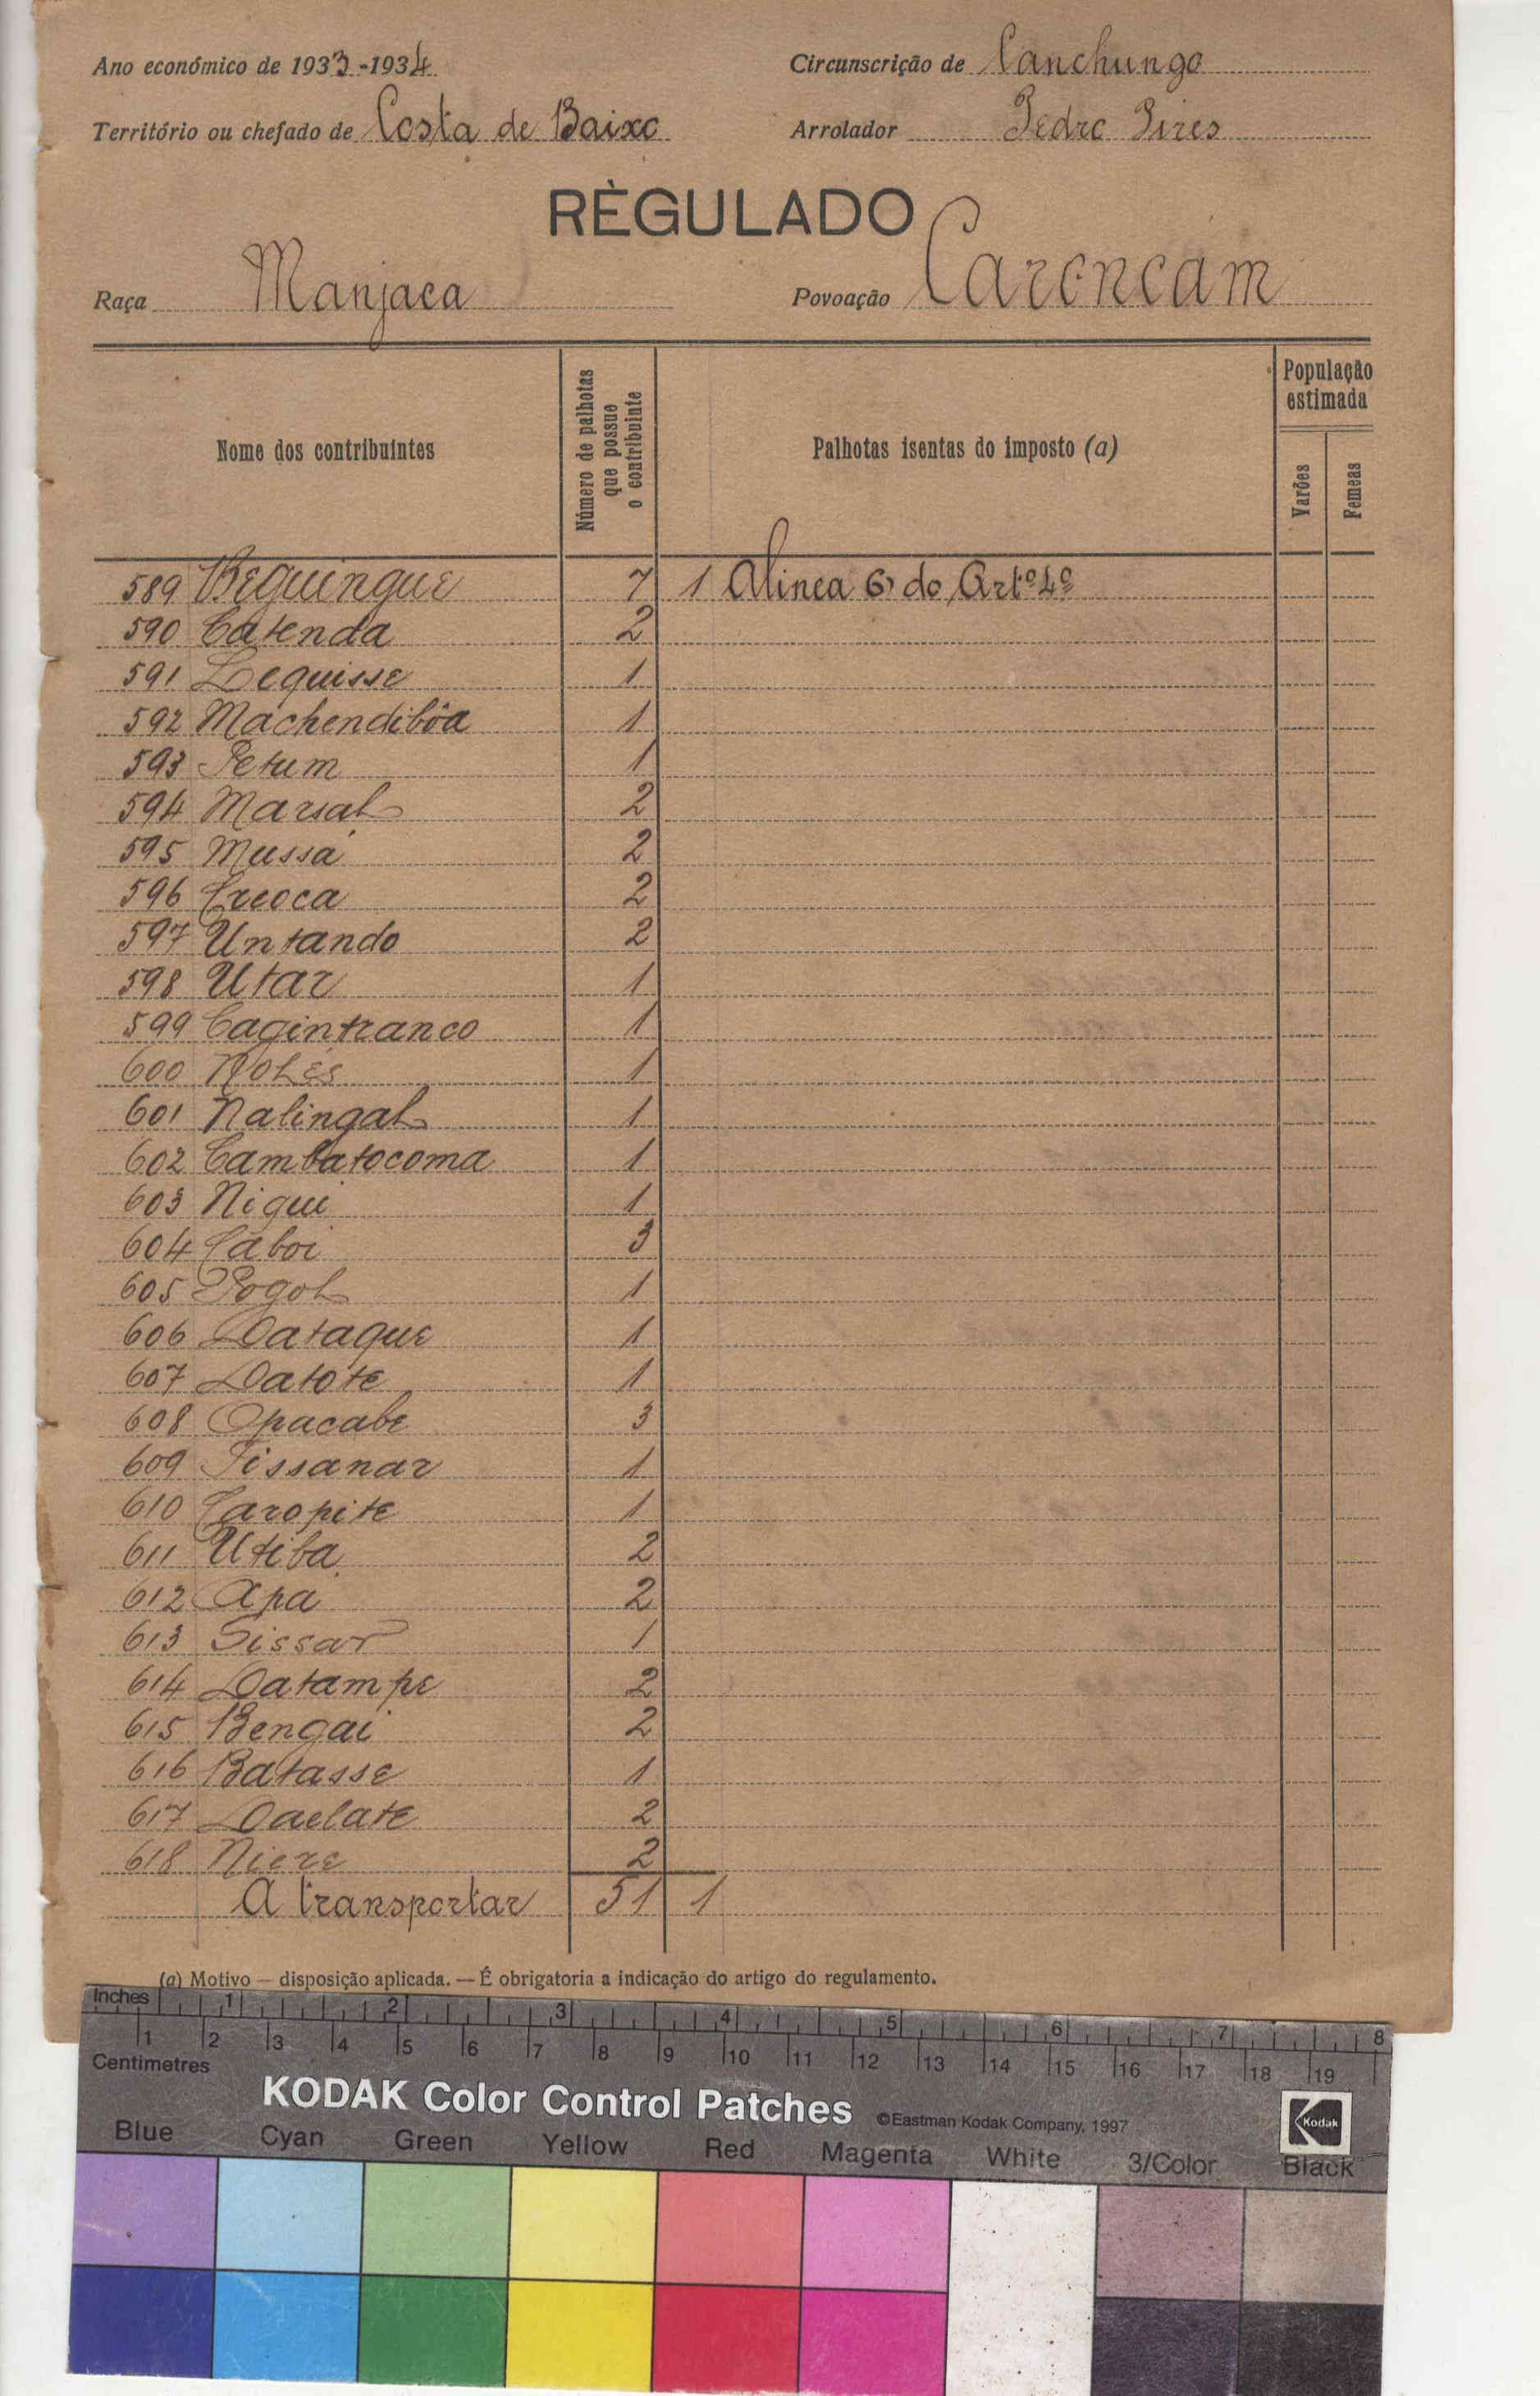 Ano económico de 1933-1934
Circunscrição de Canchungo
Território ou chefado de Costa de Baixo
Arrolador Pedro Pires
RÈGULADO
Raça Manjaca
Povoação Carencam
Nome dos contribuintes
Número de palhotas que possue o contribuinte
Palhotas isentas do imposto (a)
População estimada
Varões
Femeas
589 Beguingue 7 1 Alinea 6) do Artº 4º
590 Catenda 2
591 Lequisse 1
592 Machendibôa 1
593 Petum 1
594 Marsal 2
595 Mussá 2
596 Creoca 2
597 Untando 2
598 Utar 1
599 Cagintranco 1
600 Nolés 1
601 Nalingal 1
602 Cambatocoma 1
603 Niqui 1
604 Caboi 3
605 Pogol 1
606 Dataque 1
607 Datote 1
608 Opacabe 3
609 Tissanar 1
610 Caropite 1
611 Utiba 2
612 Apa 2
613 Sissar 1
614 Datampe 2
615 Bengai 2
616 Batasse 1
617 Daelate 2
618 Niere 2
A transportar 51 1
(a) Motivo — disposição aplicada. — É obrigatoria a indicação do artigo do regulamento.
Inches 1 2 3 4 5 6 7 8
1 2 3 4 5 6 7 8 9 10 11 12 13 14 15 16 17 18 19
Centimetres
KODAK Color Control Patches ©Eastman Kodak Company, 1997 Kodak
Blue Cyan Green Yellow Red Magenta White 3/Color Black